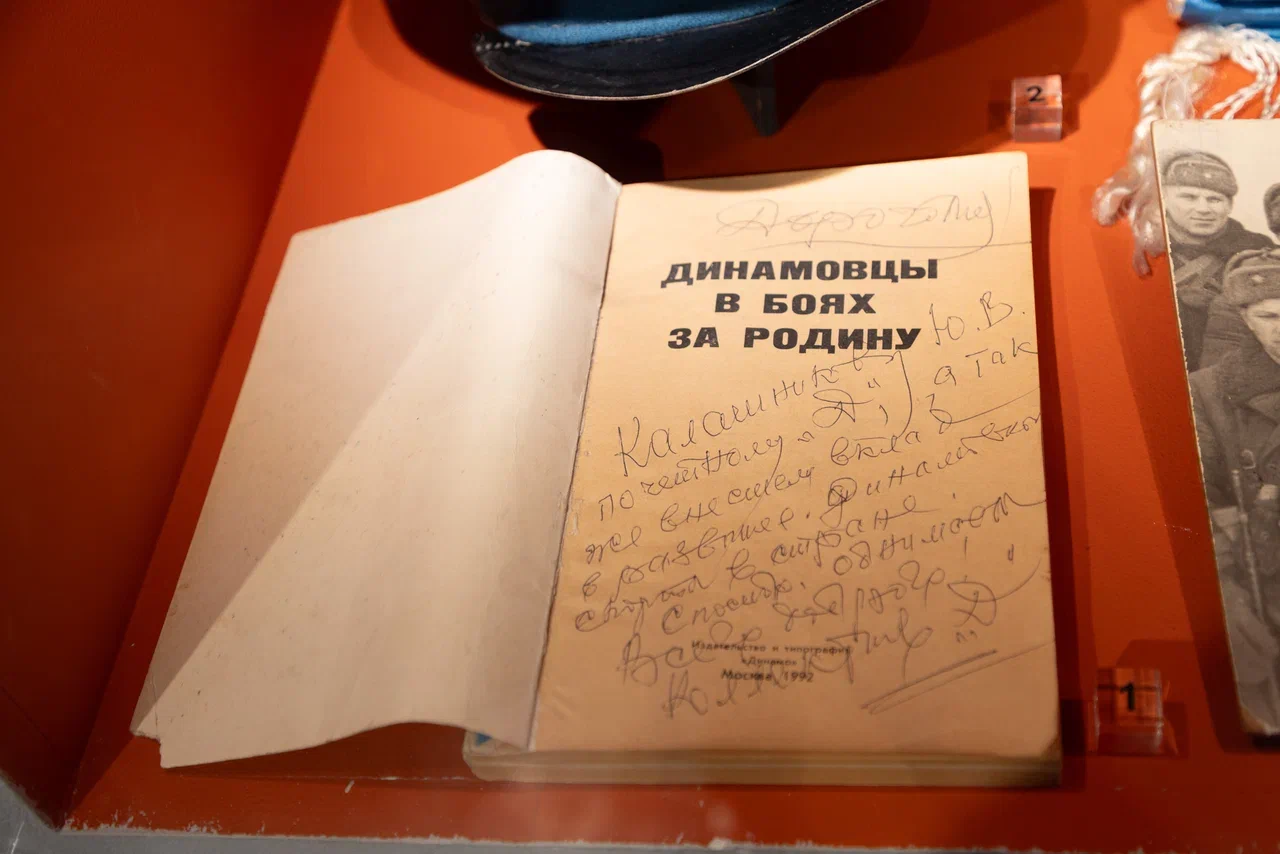 2
Дорогому
ДИНАМОВЦЫ
В БОЯХ
ЗА РОДИНУ
Калашникову Ю.В.
почетному "Д", а так
же внесшему вклад
в развитие динамовского
спорта в стране.
Спасибо.
Всего доброго!
Издательство и типография
«Динамо»
Москва, 1992
Коллектив "Д"
1